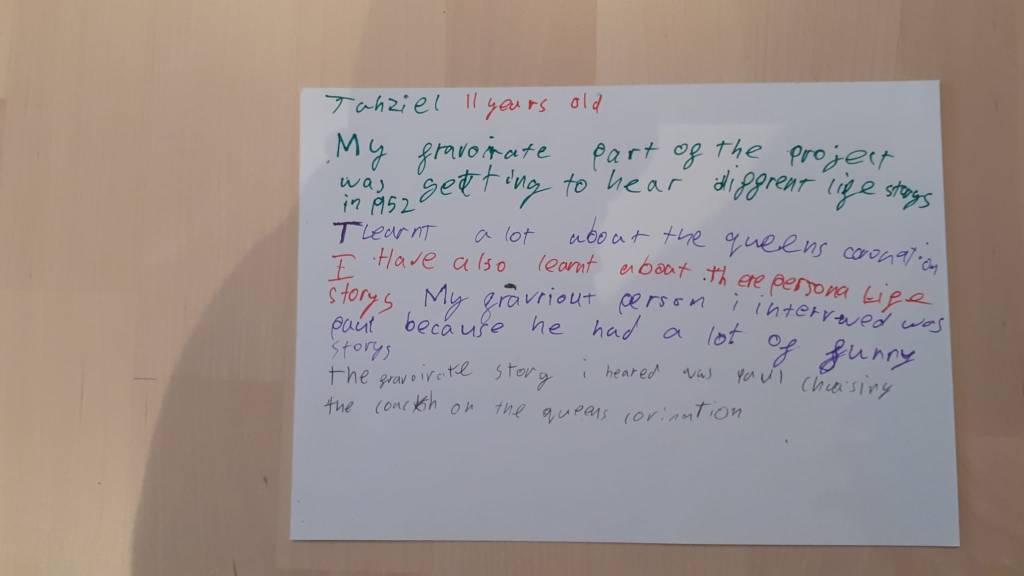 Tahziel 11 years old
My fravoirate part of the project
was getting to hear diffrent life storys
in 1952
I learnt a lot about the queens coronation
I Have also learnt about there persona Life
storys My fravriout person i interviewed was
paul because he had a lot of funny
storys
the fravoirate story i heared was paul chasing
the coach on the queens corination